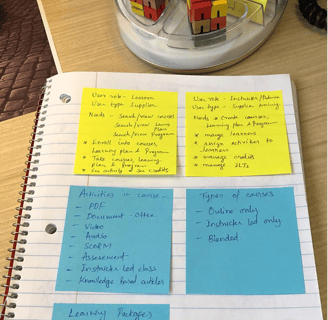 User role - Learner
User type - Supplier
Needs - Search/view courses
Search/view Learning Plans
Search/view Program
* Enroll into courses,
Learning plan & Program
* Take courses, learning
plan & Program
* See activity & See credits
User role - Instructor/Admin
User type - Supplier
Needs - Create courses,
Learning plan & Program
* manage learners
* assign activities to
learners
* manage credits
* manage ILTs
Activities in course -
- PDF
- Document - Office
- Video
- Audio
- SCORM
- Assessment
- Instructor Led class
- Knowledge based articles
Types of courses
- Online only
- Instructor led only
- Blended
Learning Packages